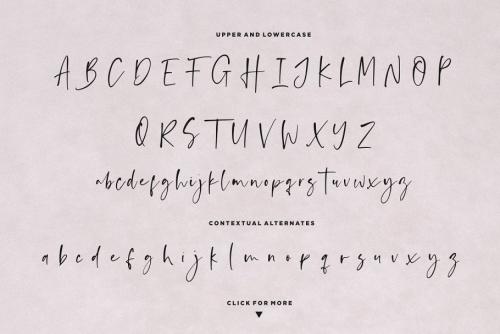 UPPER AND LOWERCASE
A B C D E F G H I J K L M N O P
Q R S T U V W X Y Z
abcdefghijklmnopqrstuvwxyz
CONTEXTUAL ALTERNATES
a b c d e f g h i j k l m n o p q r s u v w x y z
CLICK FOR MORE